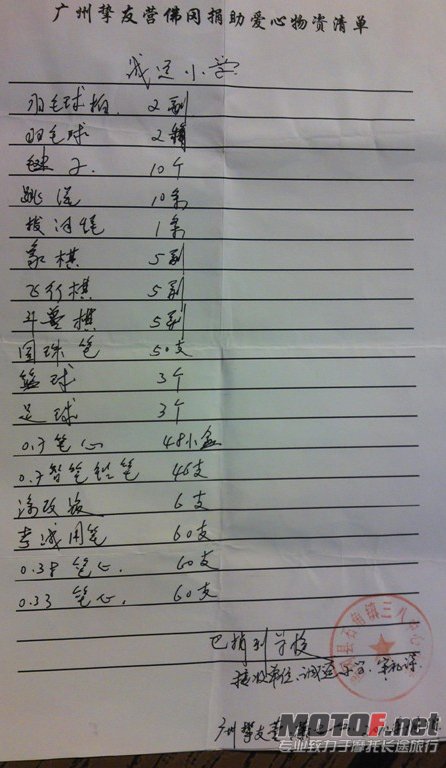 广州挚友营佛冈捐助爱心物资清单
诚迳小学
羽毛球拍. 2副
羽毛球 2桶
毽子. 10个
跳绳 10条
拔河绳 1条
象棋 5副
飞行棋 5副
斗兽棋 5副
圆珠笔 50支
篮球 3个
足球 3个
0.7笔心 48小盒
0.7智笔铅笔 46支
涂改液 6支
考试用笔 60支
0.38 笔心. 60支
0.33 笔心. 60支
已捐到学校
接收单位:诚迳小学.
广州挚友营
MOTOF.net
专业致力于摩托长途旅行